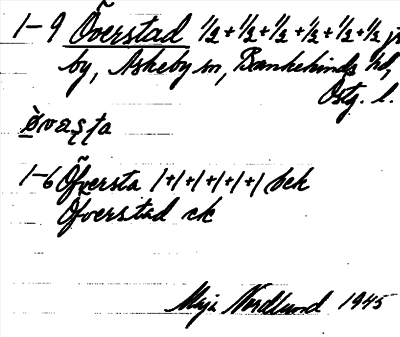 1-9 Överstad 1/2+1/2+1/2+1/2+1/2+1/2 js
by, Askeby sn, Bankekinds hd,
Östg. l.
1-6 Öfversta 1+1+1+1+1+1 beh
Öfverstad ek
Maja Nordlund 1945